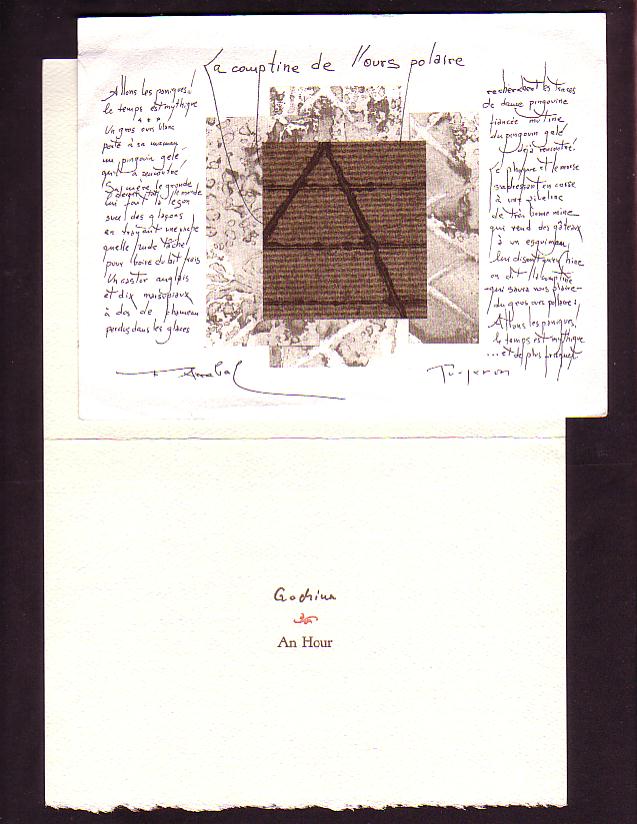 La comptine de l'ours polaire
Allons les paniques!
le temps est mythique
***
Un gros ours blanc
porte à sa maman
un pingouin gelé
qu'il a rencontré
Sa mère le gronde
lui fait la leçon
avec des glaçons
en croyant
quelle rude tâche
pour boire du lait frais
Un castor anglais
et dix marsupiaux
à dos de chameau
perdus dans les glaces
recherchent les traces
de dame pingouine
fiancée mutine
du pingouin gelé
déjà rencontré!
Le phoque et le morse
s'expressent en
à une zibeline
de très bonne mine
qui vend des gâteaux
à un esquimau
leur disant
on dit la comptine
qui saura vous plaire
du gros ours polaire!
Allons les paniques!
le temps est mythique
...et de plus
Arrabal
Godzina
An Hour